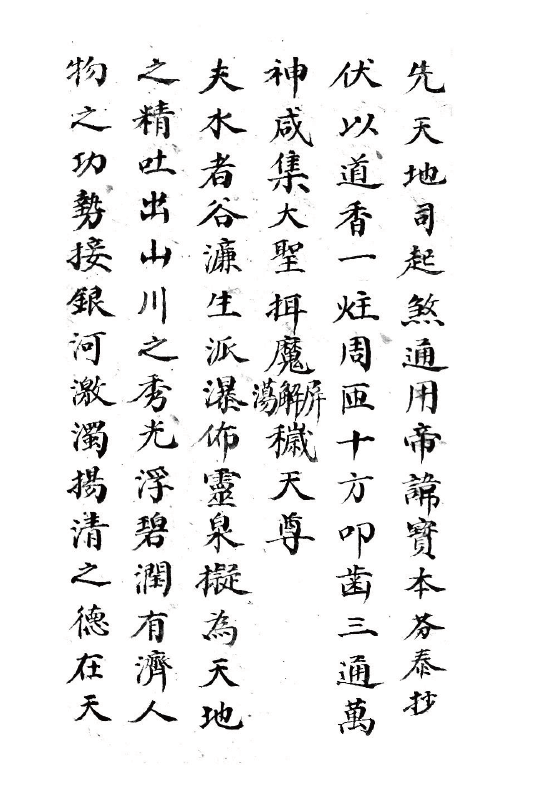 先天地司起煞通用帝諱寳本芬泰抄
伏以道香一炷周匝十方叩齒三通萬
神咸集大聖挕魔屏解蕩穢天尊
夫水者谷濂生派瀑佈靈泉擬為天地
之精吐出山川之秀光浮碧潤有濟人
物之功勢接銀河激濁揚清之德在天